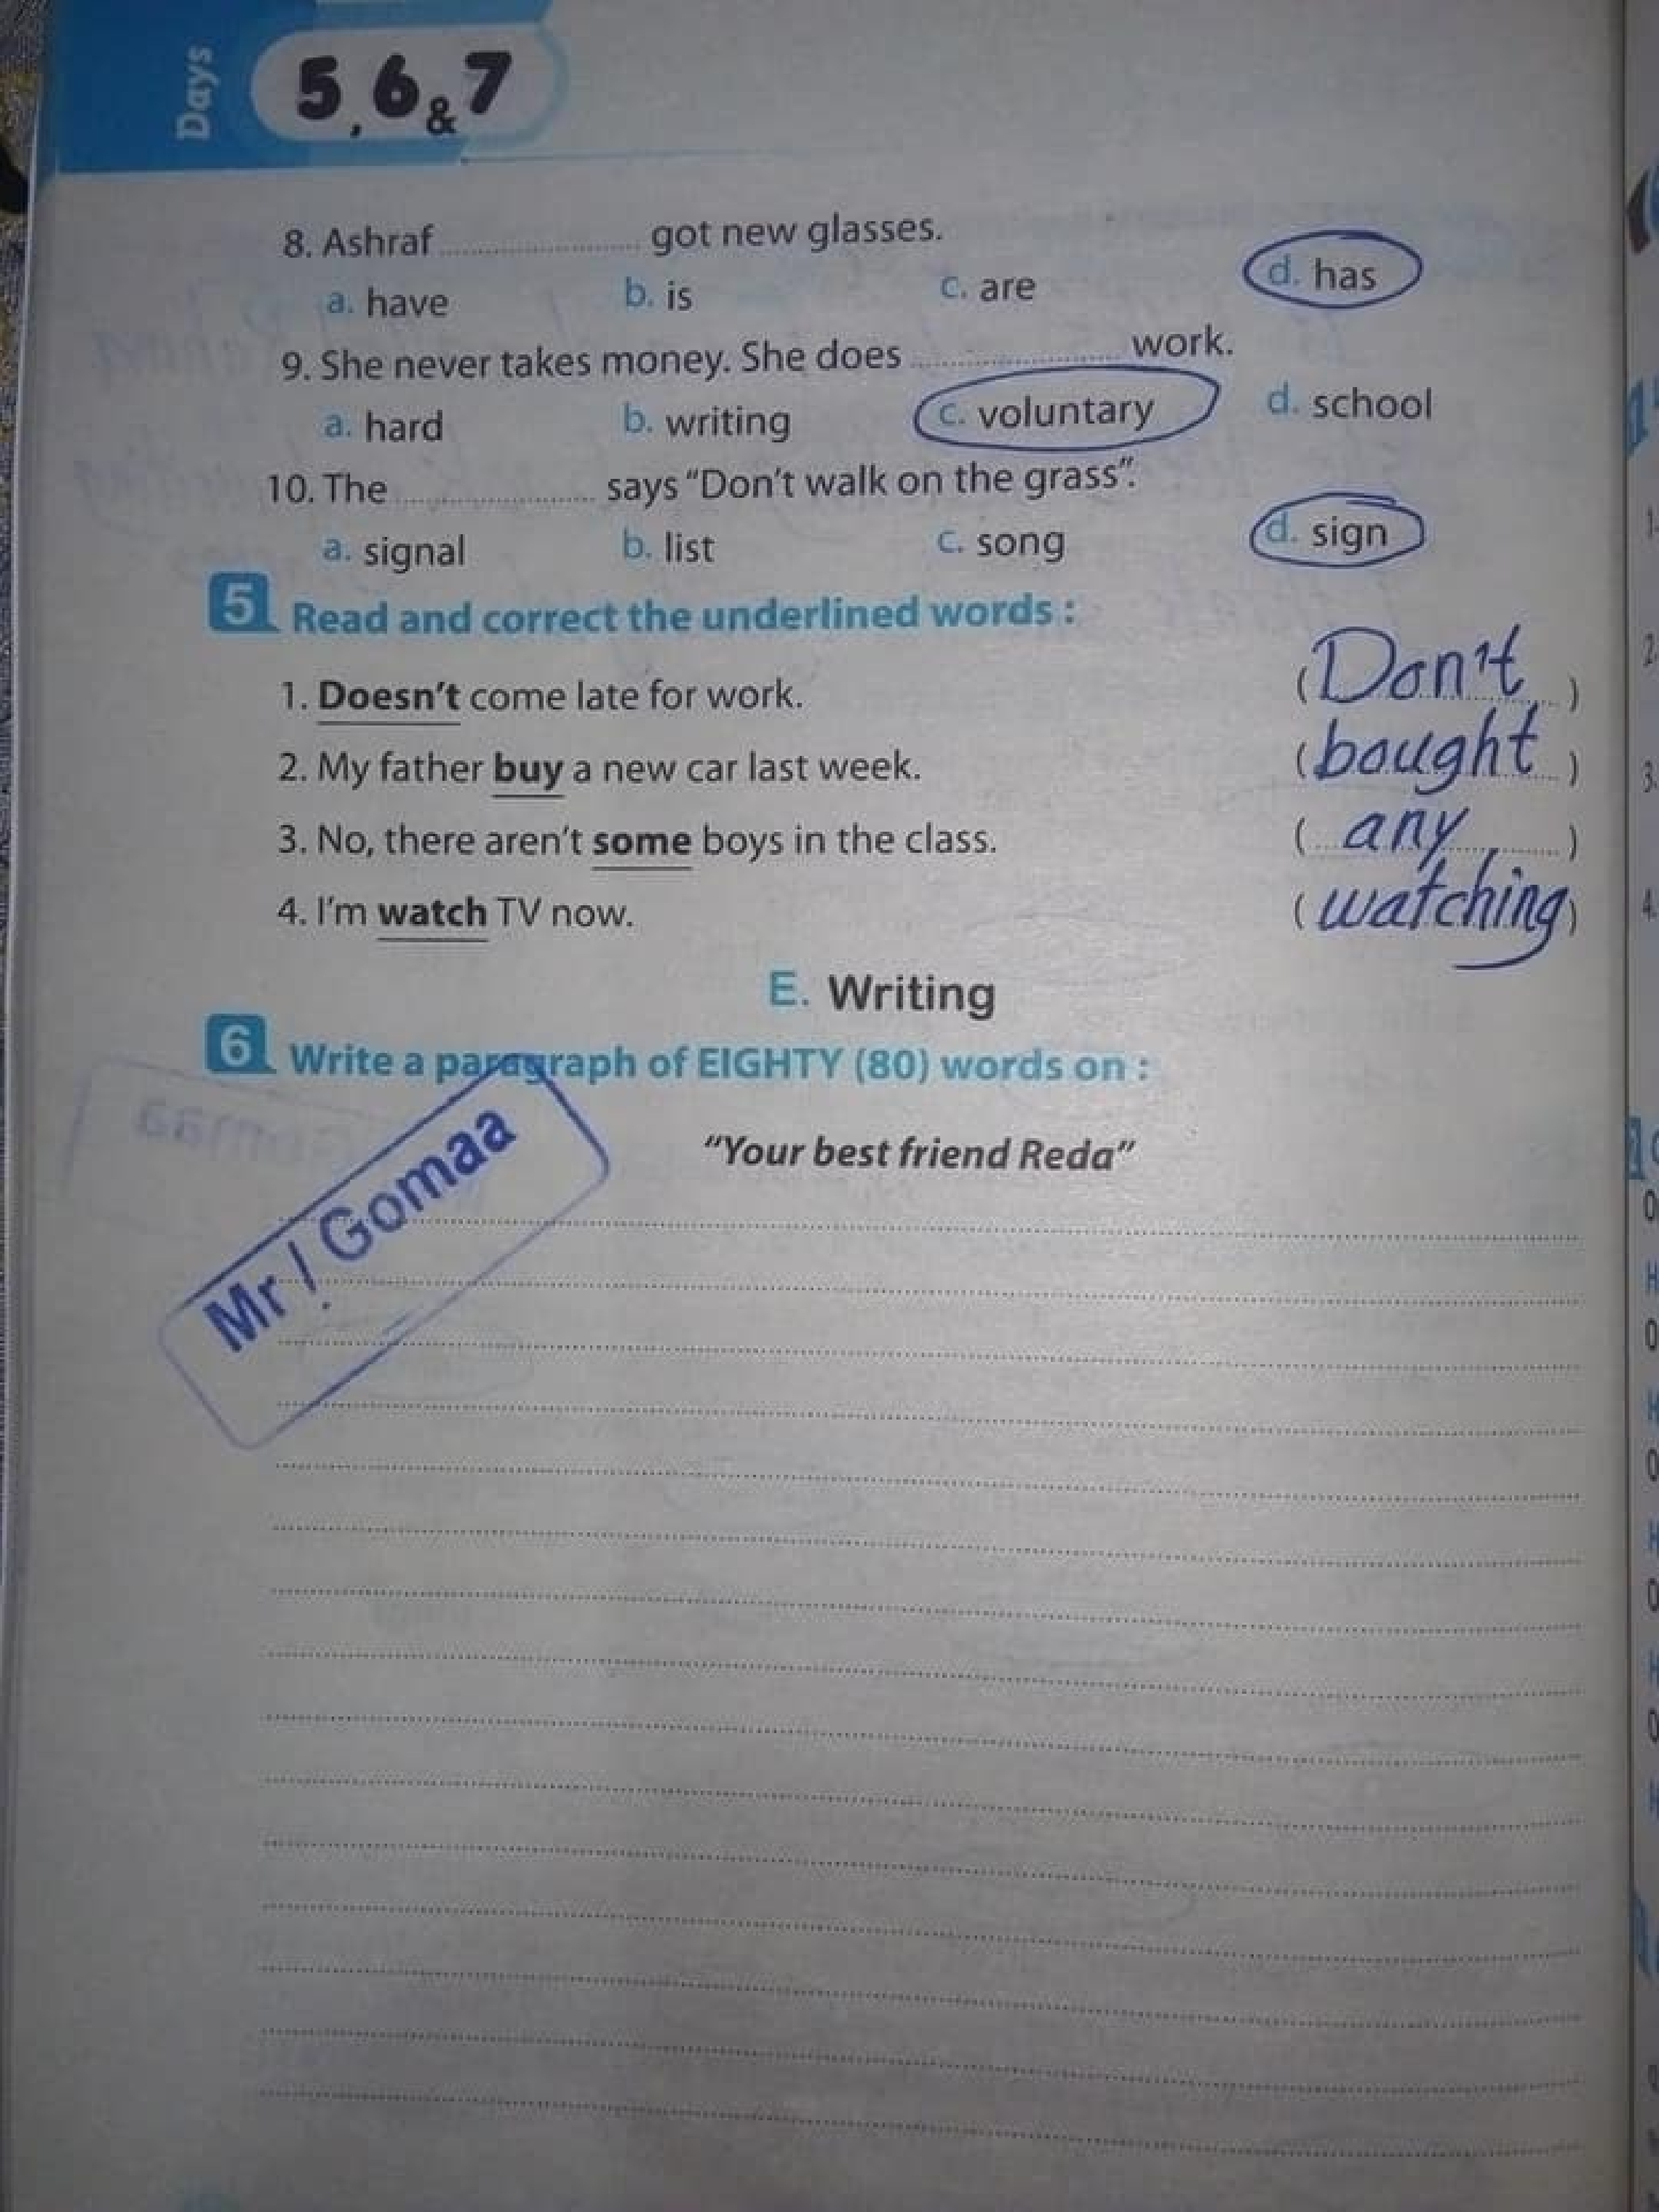 Days
5, 6 & 7
8. Ashraf .................... got new glasses.
a. have b. is c. are d. has
9. She never takes money. She does .................... work.
a. hard b. writing c. voluntary d. school
10. The .................... says “Don't walk on the grass”.
a. signal b. list c. song d. sign
5 Read and correct the underlined words :
1. Doesn't come late for work. (Don't)
2. My father buy a new car last week. (bought)
3. No, there aren't some boys in the class. (any)
4. I'm watch TV now. (watching)
E. Writing
6 Write a paragraph of EIGHTY (80) words on :
“Your best friend Reda”
Mr / Gomaa